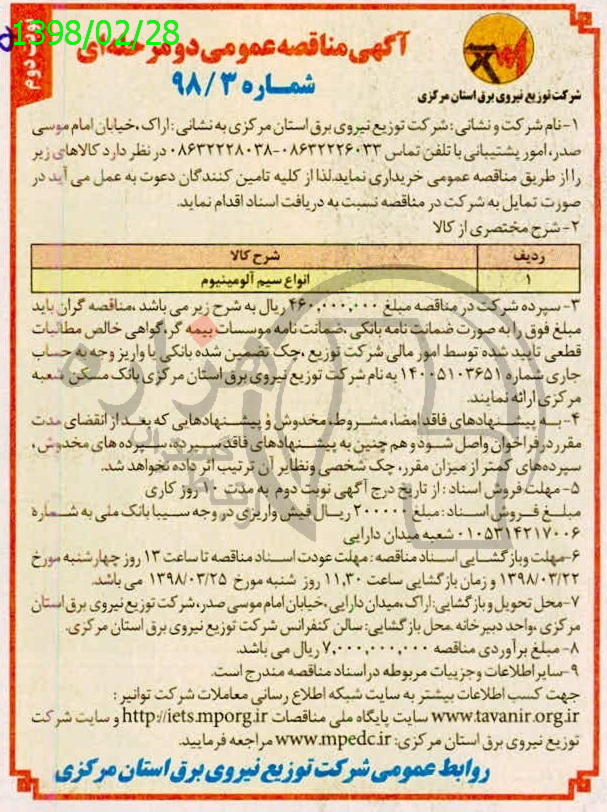 1398/02/28
نوبت دوم
آگهی مناقصه عمومی دو مرحله ای
شماره ۹۸/۳
شرکت توزیع نیروی برق استان مرکزی
۱-نام شرکت و نشانی : شرکت توزیع نیروی برق استان مرکزی به نشانی : اراک ،خیابان امام موسی
صدر، امور پشتیبانی با تلفن تماس ۰۸۶۳۲۲۲۶۰۳۳-۰۸۶۳۲۲۲۸۰۳۸ در نظر دارد کالاهای زیر
را از طریق مناقصه عمومی خریداری نماید.لذا از کلیه تامین کنندگان دعوت به عمل می آید در
صورت تمایل به شرکت در مناقصه نسبت به دریافت اسناد اقدام نماید.
۲-شرح مختصری از کالا
ردیف شرح کالا
۱ انواع سیم آلومینیوم
۳- سپرده شرکت در مناقصه مبلغ ۴۶۰,۰۰۰,۰۰۰ ریال به شرح زیر می باشد ،مناقصه گران باید
مبلغ فوق را به صورت ضمانت نامه بانکی ،ضمانت نامه موسسات بیمه گر،گواهی خالص مطالبات
قطعی تایید شده توسط امور مالی شرکت توزیع ،چک تضمین شده بانکی یا واریز وجه به حساب
جاری شماره ۱۴۰۰۵۱۰۳۶۵۱ به نام شرکت توزیع نیروی برق استان مرکزی بانک مسکن شعبه
مرکزی ارائه نمایند.
۴-به پیشنهادهای فاقد امضا، مشروط، مخدوش و پیشنهادهایی که بعد از انقضای مدت
مقرر در فراخوان واصل شود و هم چنین به پیشنهادهای فاقد سپرده، سپرده های مخدوش ،
سپرده‌های کمتر از میزان مقرر، چک شخصی ونظایر آن ترتیب اثر داده نخواهد شد.
۵-مهلت فروش اسناد : از تاریخ درج آگهی نوبت دوم به مدت ۱۰ روز کاری
مبلغ فروش اسناد : مبلغ ۲۰۰۰۰۰ ریال فیش واریزی در وجه سیبا بانک ملی به شماره
۰۱۰۵۳۱۴۲۱۷۰۰۶ شعبه میدان دارایی
۶-مهلت وبازگشایی اسناد مناقصه : مهلت عودت اسناد مناقصه تا ساعت ۱۳ روز چهارشنبه مورخ
۱۳۹۸/۰۳/۲۲ و زمان بازگشایی ساعت ۱۱,۳۰ روز شنبه مورخ ۱۳۹۸/۰۳/۲۵ می باشد.
۷-محل تحویل وبازگشایی: اراک ،میدان دارایی ،خیابان امام موسی صدر،شرکت توزیع نیروی برق استان
مرکزی ،واحد دبیرخانه .محل بازگشایی: سالن کنفرانس شرکت توزیع نیروی برق استان مرکزی.
۸- مبلغ برآوردی مناقصه ۷,۰۰۰,۰۰۰,۰۰۰ ریال می باشد.
۹-سایر اطلاعات وجزییات مربوطه دراسناد مناقصه مندرج است.
جهت کسب اطلاعات بیشتر به سایت شبکه اطلاع رسانی معاملات شرکت توانیر :
www.tavanir.org.ir سایت پایگاه ملی مناقصات http://iets.mporg.ir و سایت شرکت
توزیع نیروی برق استان مرکزی: www.mpedc.ir مراجعه فرمایید.
روابط عمومی شرکت توزیع نیروی برق استان مرکزی